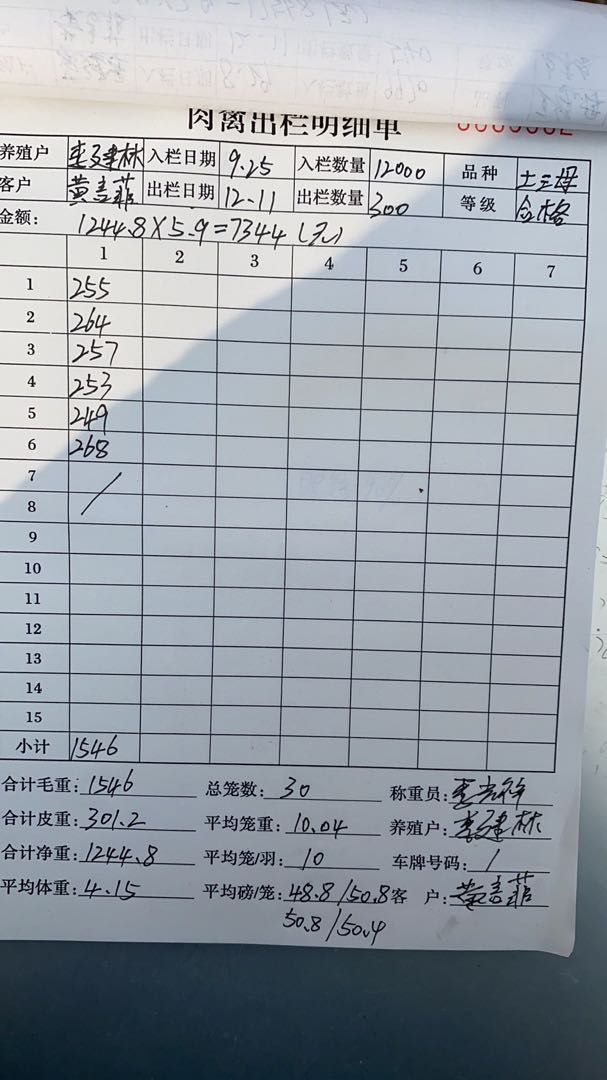 肉禽出栏明细单
养殖户 李建林 入栏日期 9.25 入栏数量 12000 品种 土三母
客户 黄志菲 出栏日期 12.11 出栏数量 300 等级 合格
金额: 1244.8×5.9=7344(元)
1 2 3 4 5 6 7
1 255
2 264
3 257
4 253
5 249
6 268
7
8
9
10
11
12
13
14
15
小计 1546
合计毛重: 1546 总笼数: 30 称重员:
合计皮重: 301.2 平均笼重: 10.04 养殖户: 李建林
合计净重: 1244.8 平均笼/羽: 10 车牌号码: /
平均体重: 4.15 平均磅/笼: 48.8/50.8 客 户: 黄志菲
50.8/50.4